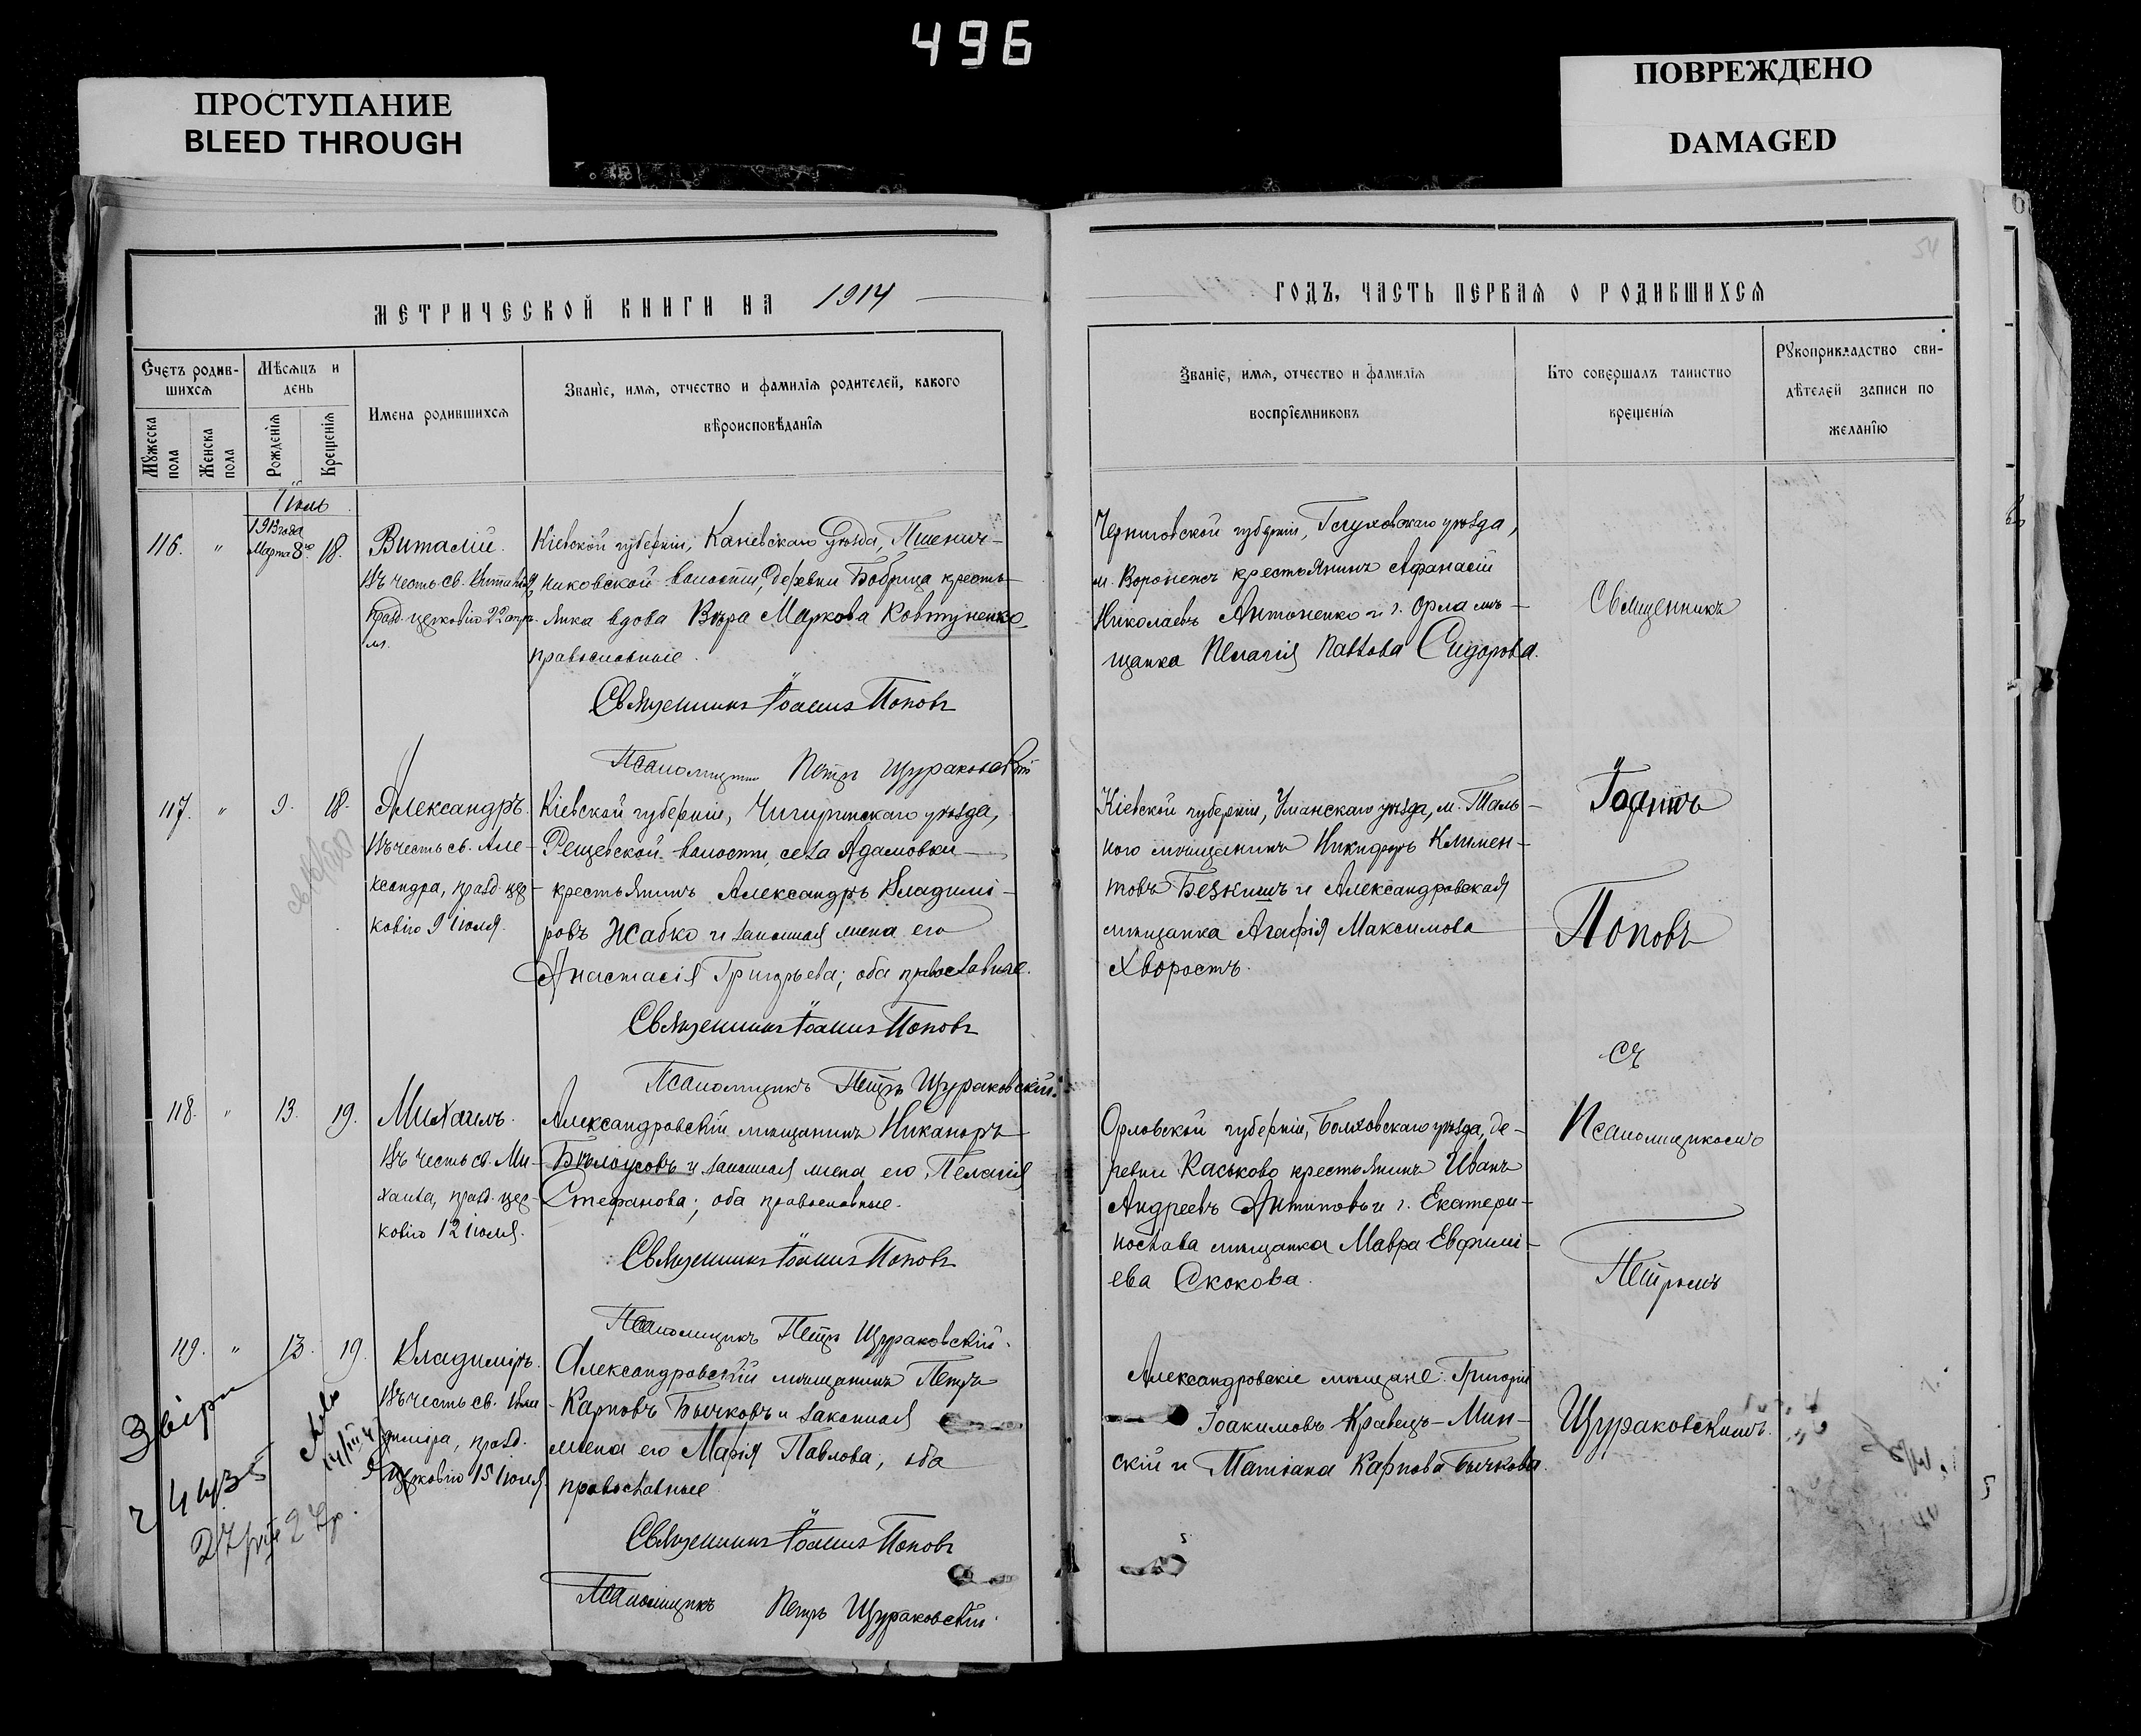 496
ПРОСТУПАНИЕ
BLEED THROUGH
ПОВРЕЖДЕНО
DAMAGED
МЕТРИЧЕСКОЙ КНИГИ НА 1914
Счетъ родив-
шихся
Мѣсяцъ и
день
Имена родившихся
Званіе, имя, отчество и фамилія родителей, какого
вѣроисповѣданія
Мужеска
пола
Женска
пола
Рожденія
Крещенія
Іюль
116. " 1913 года Марта 8го 18.
Виталій.
Въ честь св. Виталія,
празд. церковію 22 апрѣ-
ля.
Кіевской губерніи, Каневскаго уѣзда, Пшенич-
никовской волости, деревни Бобрица кресть-
янка вдова Вѣра Маркова Ковтуненко
православные.
Священникъ Іоаннъ Поповъ
Псаломщикъ Петръ Щураковскій
117. " 9. 18.
Александръ.
Въ честь св. Але-
ксандра, празд. цер-
ковію 9 іюля.
Кіевской губерніи, Чигиринскаго уѣзда,
волости, села Адамовки
крестьянинъ Александръ Владимі-
ровъ Жабко и законная жена его
Анастасія Григорьева; оба православные.
Священникъ Іоаннъ Поповъ
Псаломщикъ Петръ Щураковскій.
118. " 13. 19.
Михаилъ.
Въ честь св. Ми-
хаила, празд. цер-
ковію 12 іюля.
Александровскій мѣщанинъ Никаноръ
Бѣлоусовъ и законная жена его Пелагія
Стефанова; оба православные.
Священникъ Іоаннъ Поповъ
Псаломщикъ Петръ Щураковскій.
119. " 13. 19.
Владиміръ.
Въ честь св. Вла-
диміра, празд.
церковію 15 іюля
Александровскій мѣщанинъ Петръ
Карповъ Бычковъ и законная
жена его Марія Павлова; оба
православные
Священникъ Іоаннъ Поповъ
Псаломщикъ Петръ Щураковскій.
54
ГОДЪ, ЧАСТЬ ПЕРВАЯ О РОДИВШИХСЯ
Званіе, имя, отчество и фамилія
воспріемниковъ
Кто совершалъ таинство
крещенія
Рукоприкладство сви-
дѣтелей записи по
желанію
Черниговской губерніи, Глуховскаго уѣзда,
м. Воронежъ крестьянинъ Афанасій
Николаевъ Антоненко и г. Орла мѣ-
щанка Пелагія Павлова Сидорова.
Кіевской губерніи, Уманскаго уѣзда, м. Таль-
ного мѣщанинъ Никифоръ Климен-
товъ и Александровская
мѣщанка Агафія Максимова
Хворостъ.
Орловской губерніи, Болховскаго уѣзда, де-
ревни Каськово крестьянинъ Иванъ
Андреевъ Антиповъ и г. Екатери-
нослава мѣщанка Мавра Евфимі-
ева Скокова.
Александровскіе мѣщане: Григорій
Іоакимовъ Кравецъ-Мин-
скій и Татіана Карпова Бычкова.
Священникъ
Іоаннъ
Поповъ
съ
Псаломщикомъ
Петромъ
Щураковскимъ.